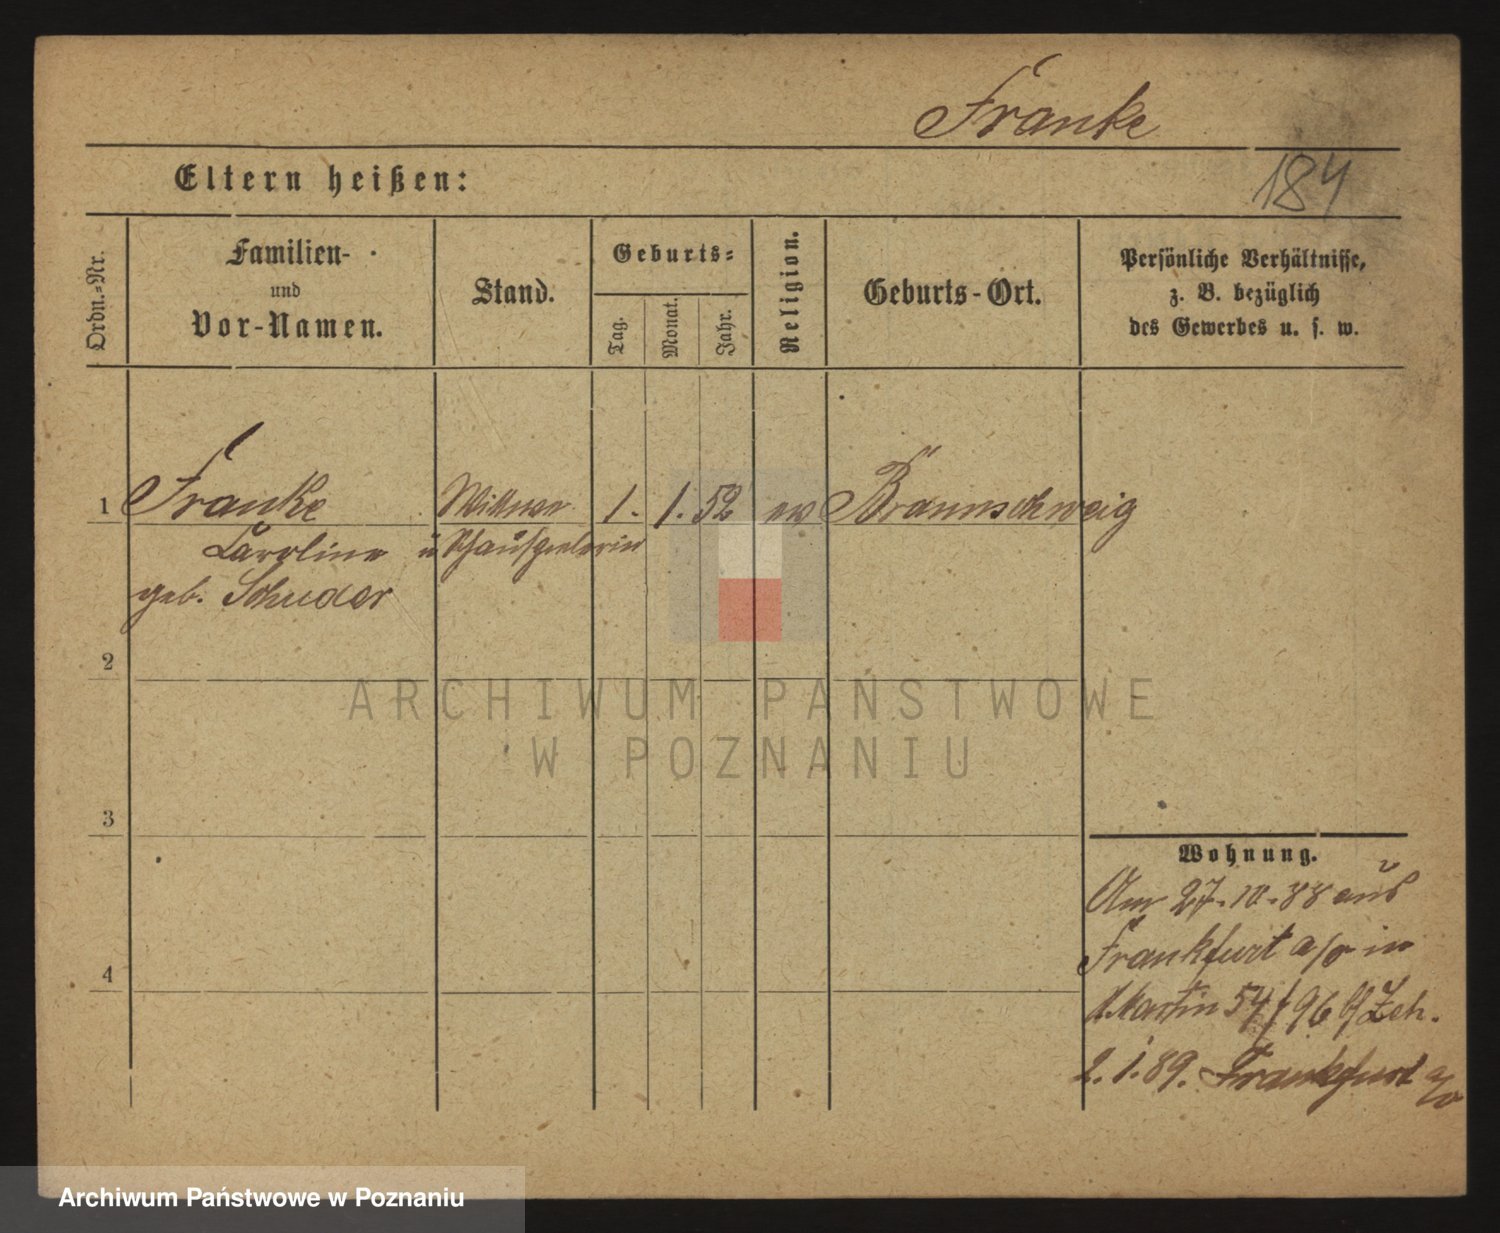 Franke
184
Eltern heißen:
Ordn.-Nr.
Familien-
und
Vor-Namen.
Stand.
Geburts-
Tag.
Monat.
Jahr.
Religion.
Geburts-Ort.
Persönliche Verhältnisse,
z. B. bezüglich
des Gewerbes u. s. w.
1 Franke Wittwe 1. 1. 52 ev Braunschweig
Caroline u Schauspielerin
geb. Schuder
2
ARCHIWUM PAŃSTWOWE
W POZNANIU
3
Wohnung.
Am 27.10.88 aus
Frankfurt a/o in
4
Martin 54/96 b/ Zeh.
2.1.89. Frankfurt a/o
Archiwum Państwowe w Poznaniu